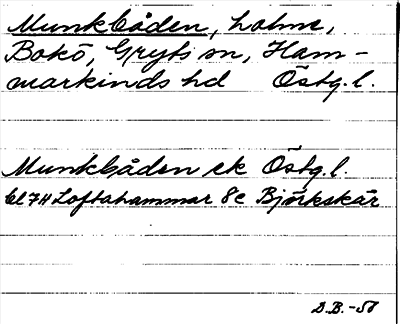 Munkbåden, holme,
Bokö, Gryts sn, Ham-
markinds hd Östg.l.
Munkbåden ek Östg.l.
bl 74 Loftahammar 8c Björkskär
D.B.-58